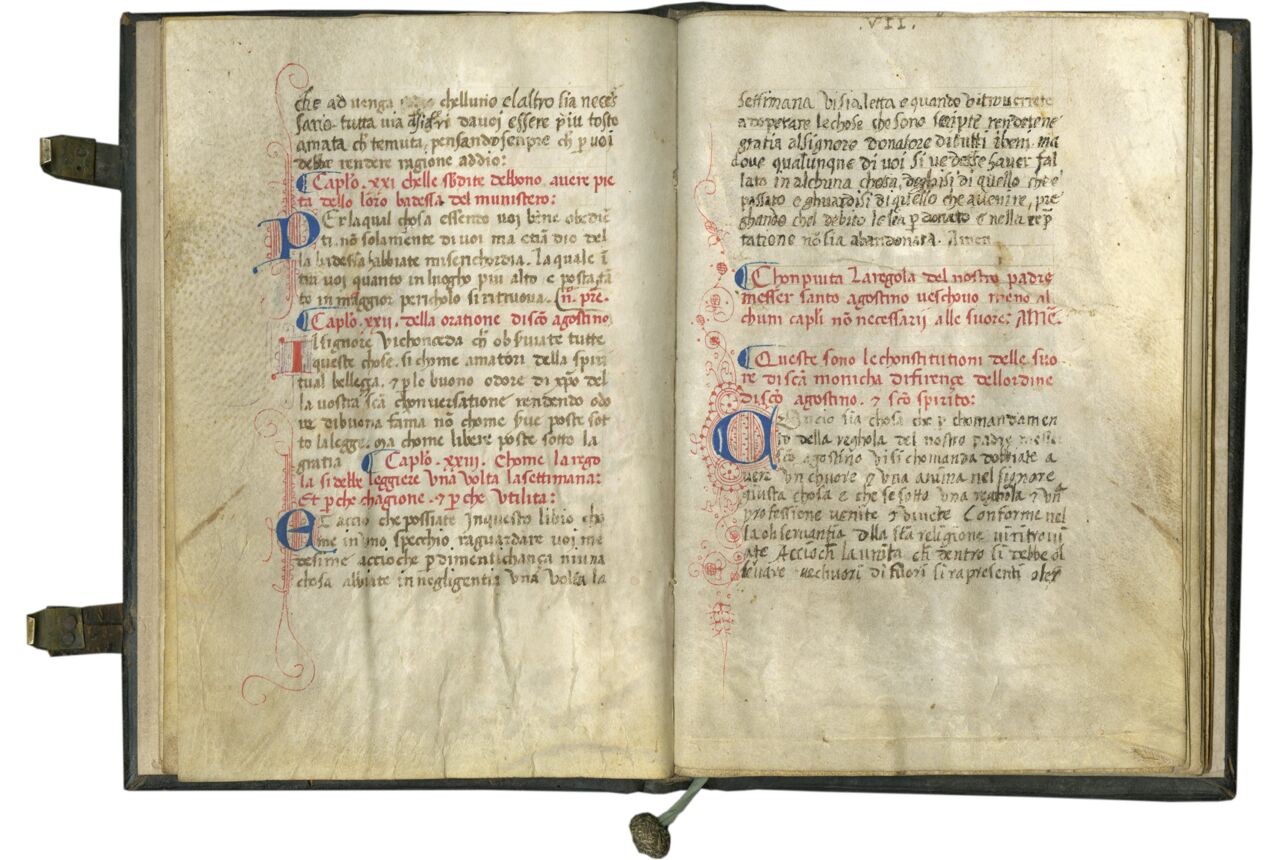 che ad venga chelluno elaltro sia neces
sario. tutta via da voi essere piu tosto
amata ch̄ temuta, pensando senpre ch̄ ꝑ voi
debbe rendere ragione addio:
Caplo. xxi chelle sb̄dite debbono avere pie
ta dello loro badessa del munistero:
Per laqual chosa essendo voi bene obediē
ti. nō solamente di voi ma etiā dio del
la badessa abbiate miserichordia. la quale ī
tra voi quanto in luogho piu alto e posta, tā
to in maggior pericholo si ritruova.
Caplo. xxii. della oratione di scō agostino
Il signore vi chonceda ch̄ observiate tutte
queste chose. si chome amatori della spiri
tual bellezza. ⁊ ꝑ lo buono odore di xp̄o del
la vostra scā chonversatione rendendo odo
re di buona fama nō chome sue poste sot
to la legge. ma chome libere poste sotto la
gratia Caplo. xxiii. Chome la rego
la si delle leggiere una volta la settimana:
Et ꝑ che chagione. ⁊ ꝑ che utilita:
Et accio che possiate in questo libro cho
me in uno specchio raguardare voi me
desime accioche ꝑ dimentichança niuna
chosa abbiate in negligentia una volta la
.VII.
settimana vi sia letta e quando vi troverrete
adoperare le chose che sono scripte rendetene
gratia al signore donatore di tutti i beni. ma
dove qualunque di voi si vedesse haver fal
lato in alchuna chosa, dogłisi di quello che e
passato e ghuardisi di quello che a venire, pre
ghando chel debito le sia ꝑdonato e nella
tatione nō sia abandonata. Amen
Chonpiuta La regola del nostro padre
messer santo agostino veschovo meno al
chuni capli nō necessarii alle suore: AMĒ.
Queste sono le chonstitutioni delle suo
re di scā monicha di firençe dellordine
di scō agostino. ⁊ scō spirito:
Concio sia chosa che ꝑ chomandamen
to della reghola del nostro padre messer
scō agostino vi si chomanda dobbiate a
vere un chuore ⁊ una anima nel signore
giusta chosa e che se sotto una reghola ⁊ un̄
professione venite ⁊ vivete Conforme nel
la observantia della scā religione vi ritrovi
ate Accioch̄ la unita ch̄ dentro si debbe ol
servare ne chuori di fuori si rapresenti